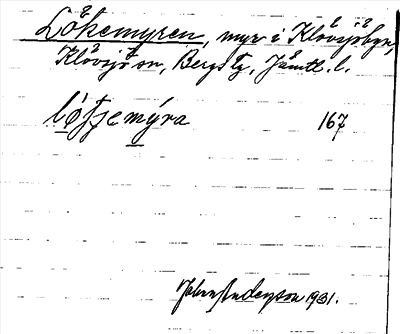 Lökemyren, myr i Klövsjöbyn,
Klövsjö sn, Bergs tg, Jämtl. l.
lö́tjemýra 167
1931.